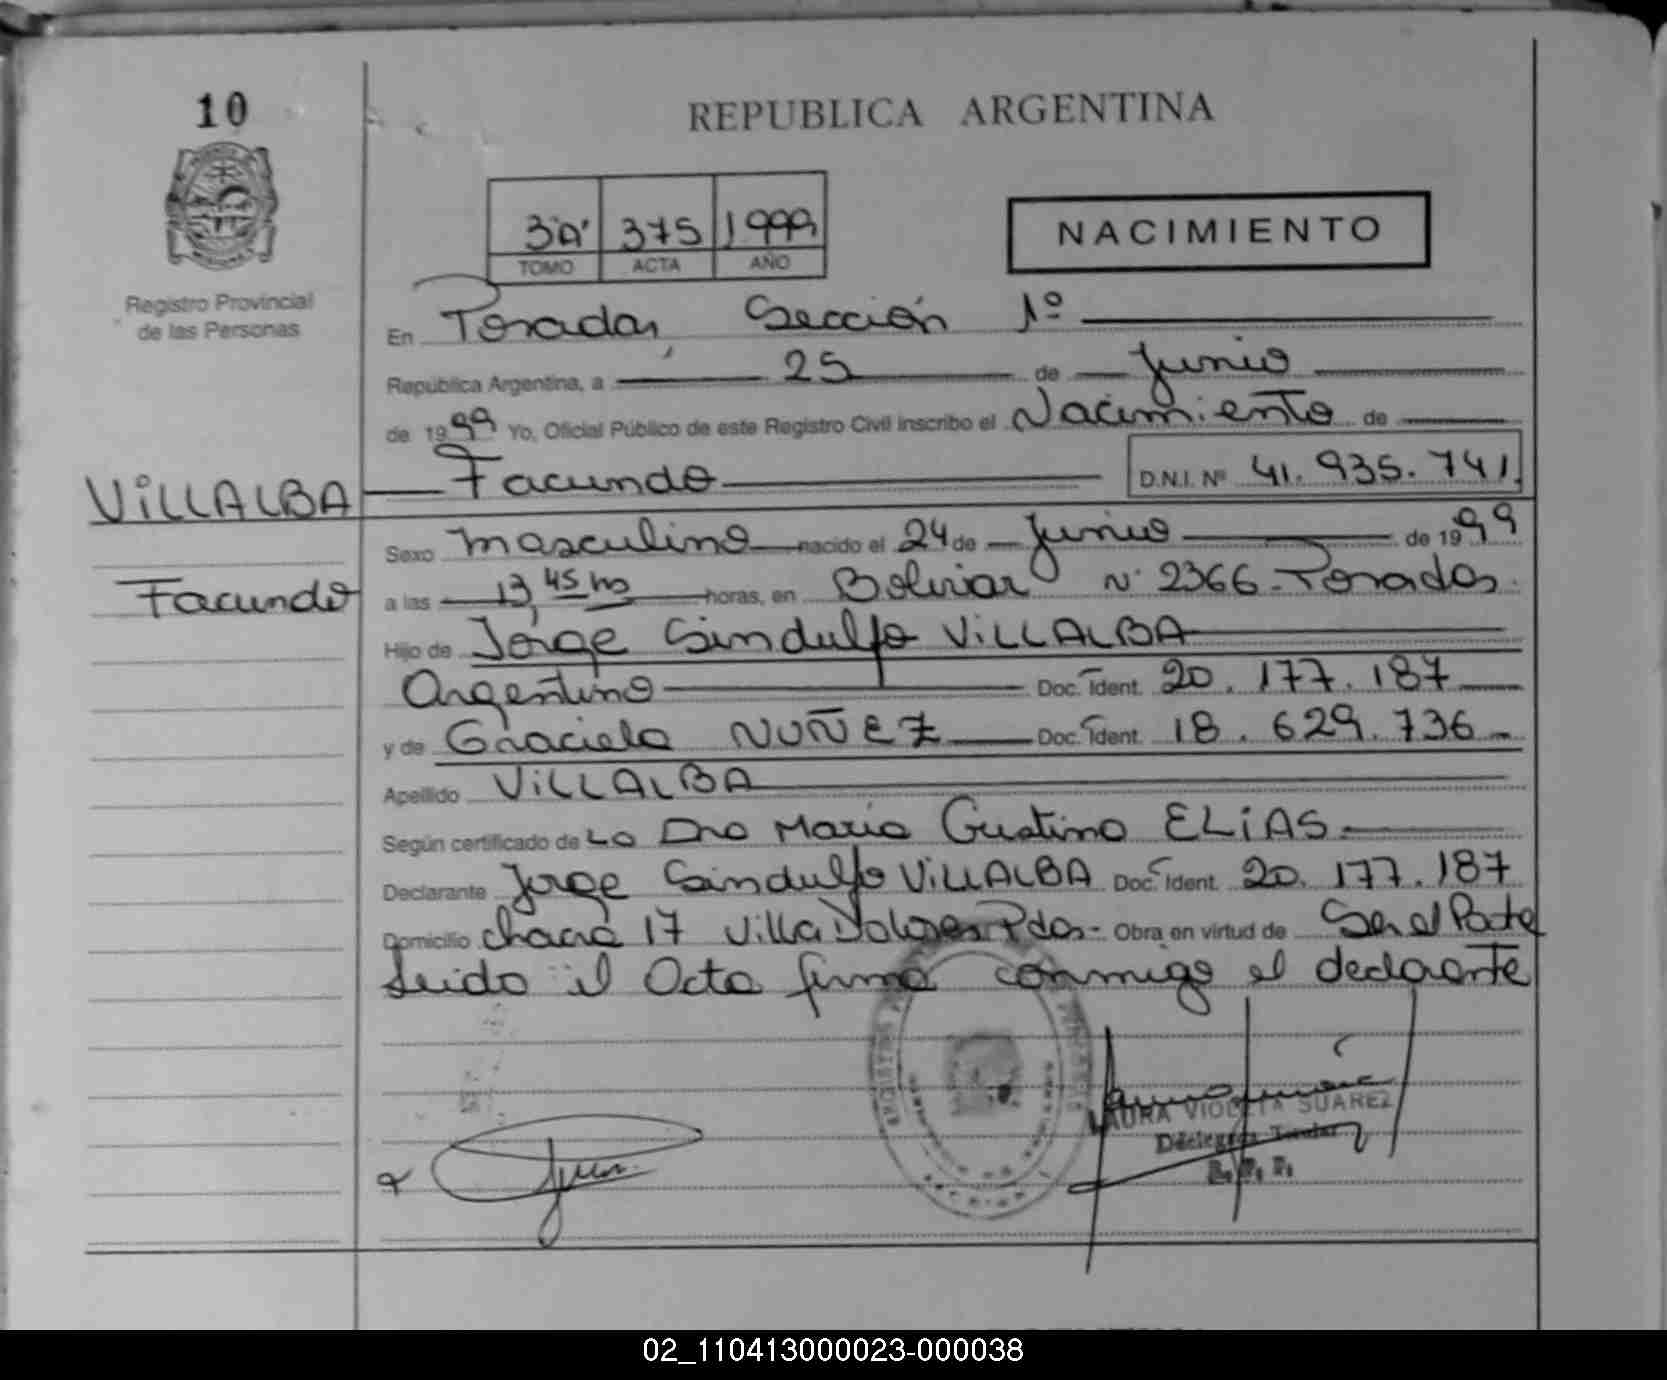 10
REPUBLICA ARGENTINA
3"A" 375 1999
TOMO ACTA AÑO
NACIMIENTO
Registro Provincial
de las Personas
En Posadas, Sección 1º
República Argentina, a 25 de Junio
de 1999 Yo, Oficial Público de este Registro Civil inscribo el Nacimiento de
VILLALBA Facundo D.N.I. Nº 41.935.741
Sexo masculino nacido el 24 de Junio de 1999
Facundo a las 13,45 hs horas, en Bolivar Nº 2366 - Posadas.
Hijo de Jorge Sindulfo VILLALBA
Argentino Doc. Ident. 20.177.187
y de Graciela NUÑEZ Doc. Ident. 18.629.736
Apellido VILLALBA
Según certificado de La Dra Maria Cristina ELIAS.
Declarante Jorge Sindulfo VILLALBA Doc. Ident. 20.177.187
Domicilio chacra 17 Villa Dolores Pdas - Obra en virtud de Ser el Padre
Leido el Acta firma conmigo el declarante
LAURA VIOLETA SUAREZ
Delegada Titular
R. P. P.
02_110413000023-000038